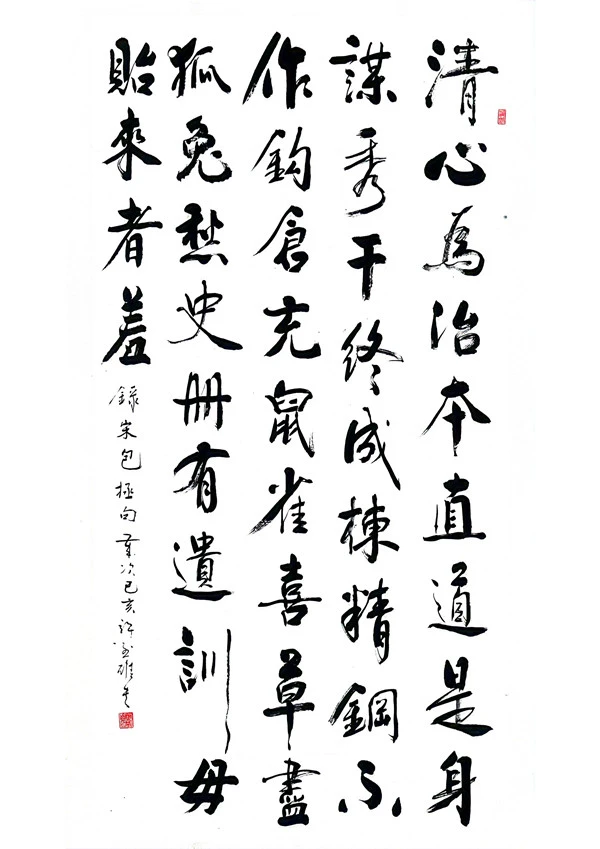 清心為治本直道是身
謀秀干終成棟精鋼不
作鈎倉充鼠雀喜草盡
狐兔愁史冊有遺訓毋
貽來者羞
錄宋包拯句 歲次己亥許